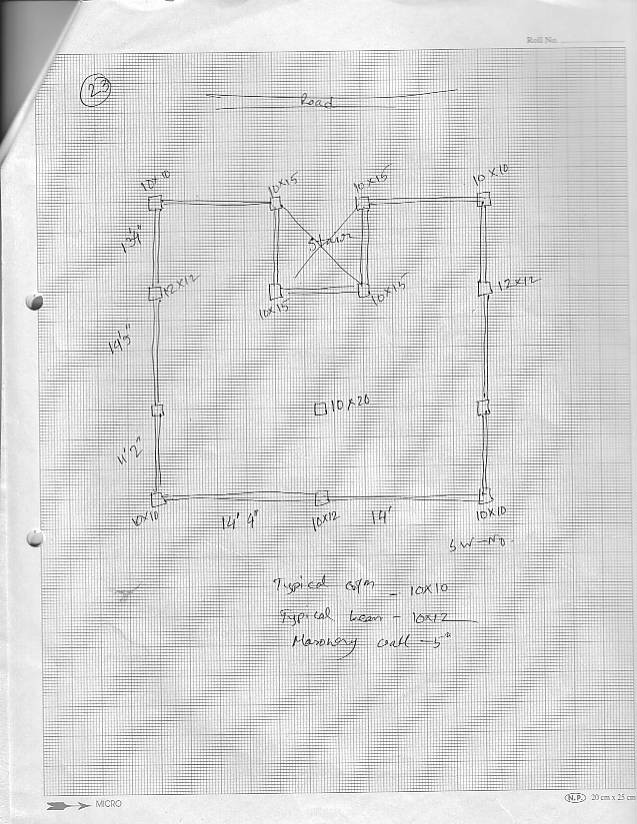 Roll No.
23
Road
10×10
10×15
10×15
10×10
Stair
12×12
12×12
10×15
10×15
14'5"
10×20
11'2"
10×10
14' 4"
10×12
14'
10×10
SW-NO.
Typical colm - 10×10
Typical beam - 10×12
Masonery wall - 5"
MICRO
N.P. 20 cm x 25 cm